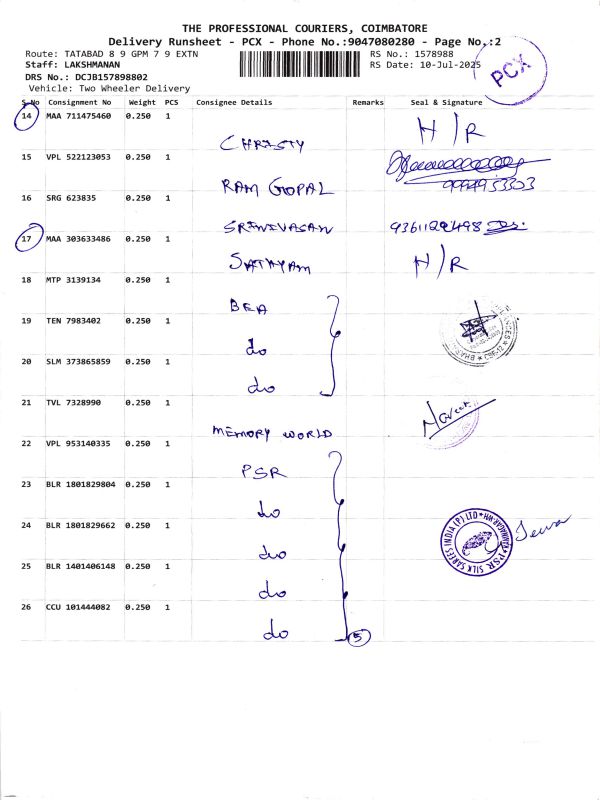 THE PROFESSIONAL COURIERS, COIMBATORE
Delivery Runsheet - PCX - Phone No.:9047080280 - Page No.:2
Route: TATABAD 8 9 GPM 7 9 EXTN RS No.: 1578988
Staff: LAKSHMANAN RS Date: 10-Jul-2025
PCX
DRS No.: DCJB157898802
Vehicle: Two Wheeler Delivery
S.No Consignment No Weight PCS Consignee Details Remarks Seal & Signature
14 MAA 711475460 0.250 1
CHRISTY H/R
15 VPL 522123053 0.250 1
RAM GOPAL
16 SRG 623835 0.250 1
SRINIVASAN
17 MAA 303633486 0.250 1
SATHYAM H/R
18 MTP 3139134 0.250 1
BEA
19 TEN 7983402 0.250 1
do
20 SLM 373865859 0.250 1
do
21 TVL 7328990 0.250 1
MEMORY WORLD
22 VPL 953140335 0.250 1
PSR
23 BLR 1801829804 0.250 1
do
24 BLR 1801829662 0.250 1
do
PSR SILK SAREES INDIA (P) LTD
25 BLR 1401406148 0.250 1
do
26 CCU 101444082 0.250 1
do 5